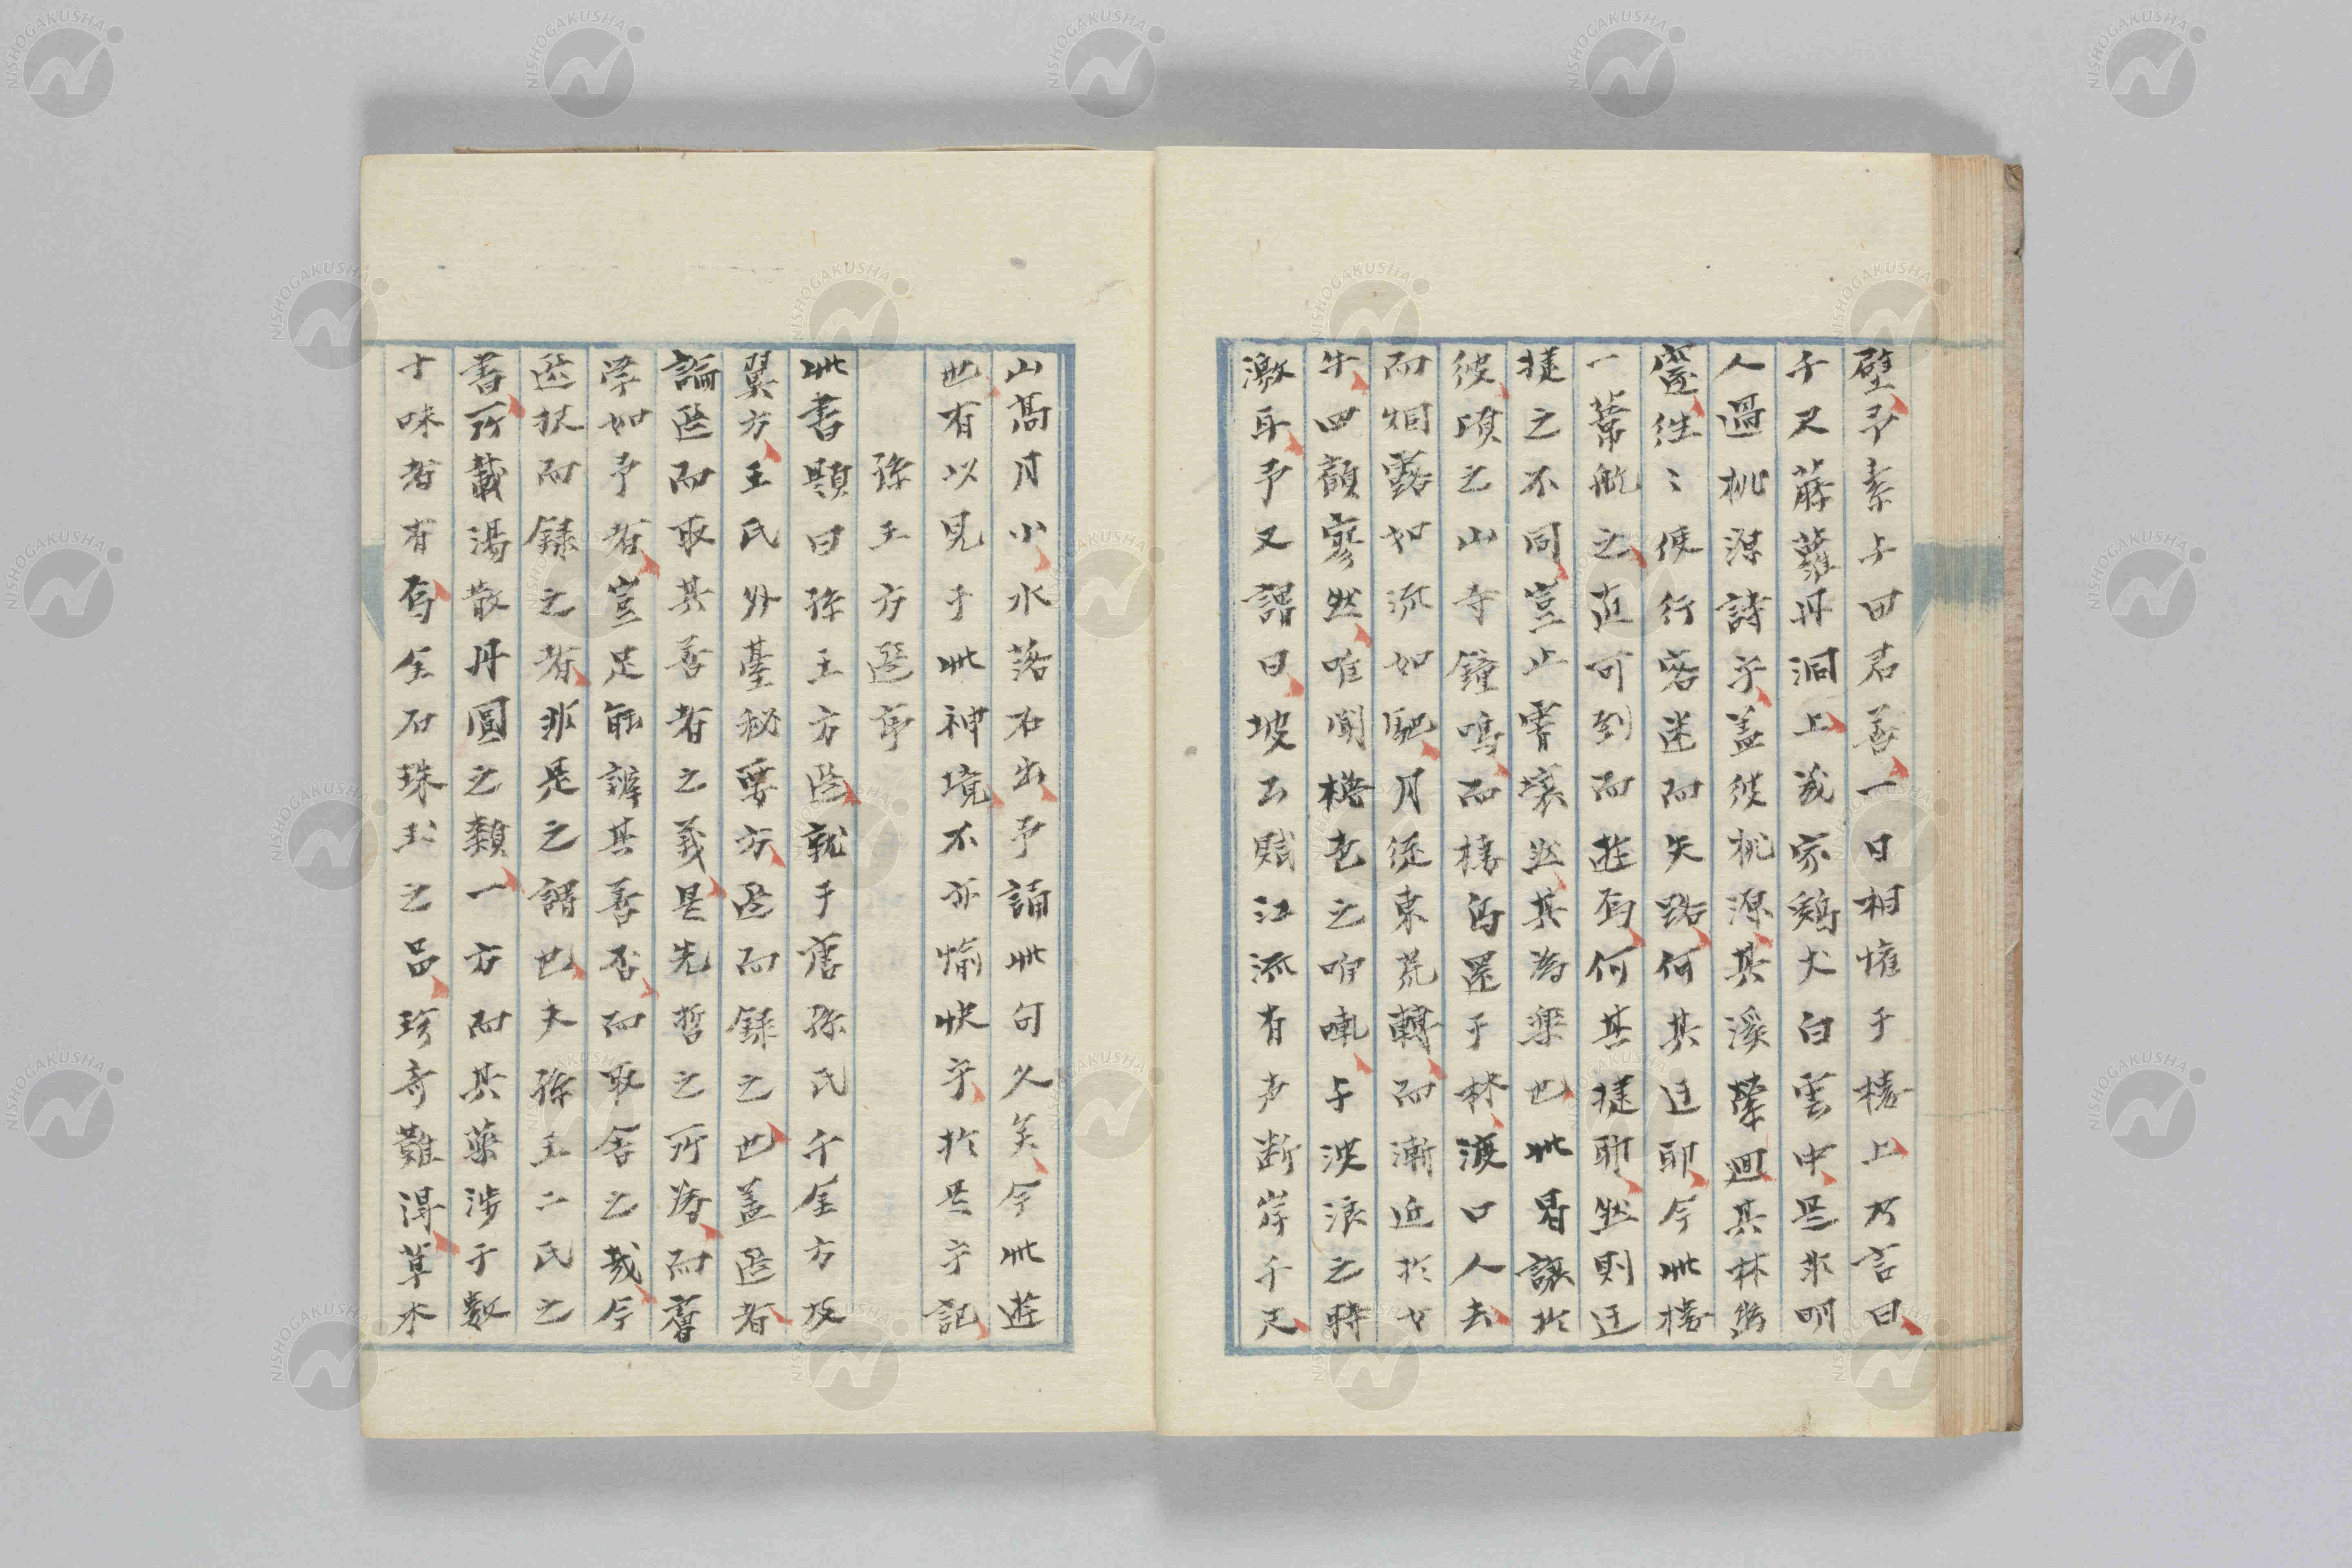 壁予素与田君善一日相携于樓上乃言曰
千又薜蘿丹洞上幾家鷄犬白雲中是非明
人過桃源詩乎盖從桃源其溪縈廻其林
窪往〻使行客迷而失路何其迂耶今此樓
一葦航之直可到而遊焉何其捷耶然則迂
捷之不同豈止霄壤然其為樂也此暑讓於
彼須之山寺鐘鳴而棲烏還于林渡口人去
而烟靄如流如馳月從東荒轉而漸近於女
牛四顧寥然唯聞櫓声之咿軋与波浪之時
激耳予又謂曰坡云賦江流有声断岸千尺
山高月小水落石出予誦此句久矣今此遊
也有以見于此神境不亦愉快乎於是乎記
孫王方選序
此書題曰孫王方選就于唐孫氏千金方及
翼方王氏外臺秘要方選而録之也盖選者
論選而取其善者之義是先哲之所為而膚
学如予者豈足能辨其善否而取舎之哉今
選択而録之者非是之謂也夫孫王二氏之
書所載湯散丹圓之類一方而其薬渉于数
十味者有焉金石珠玉之品珍奇難得草木
NISHOGAKUSHA